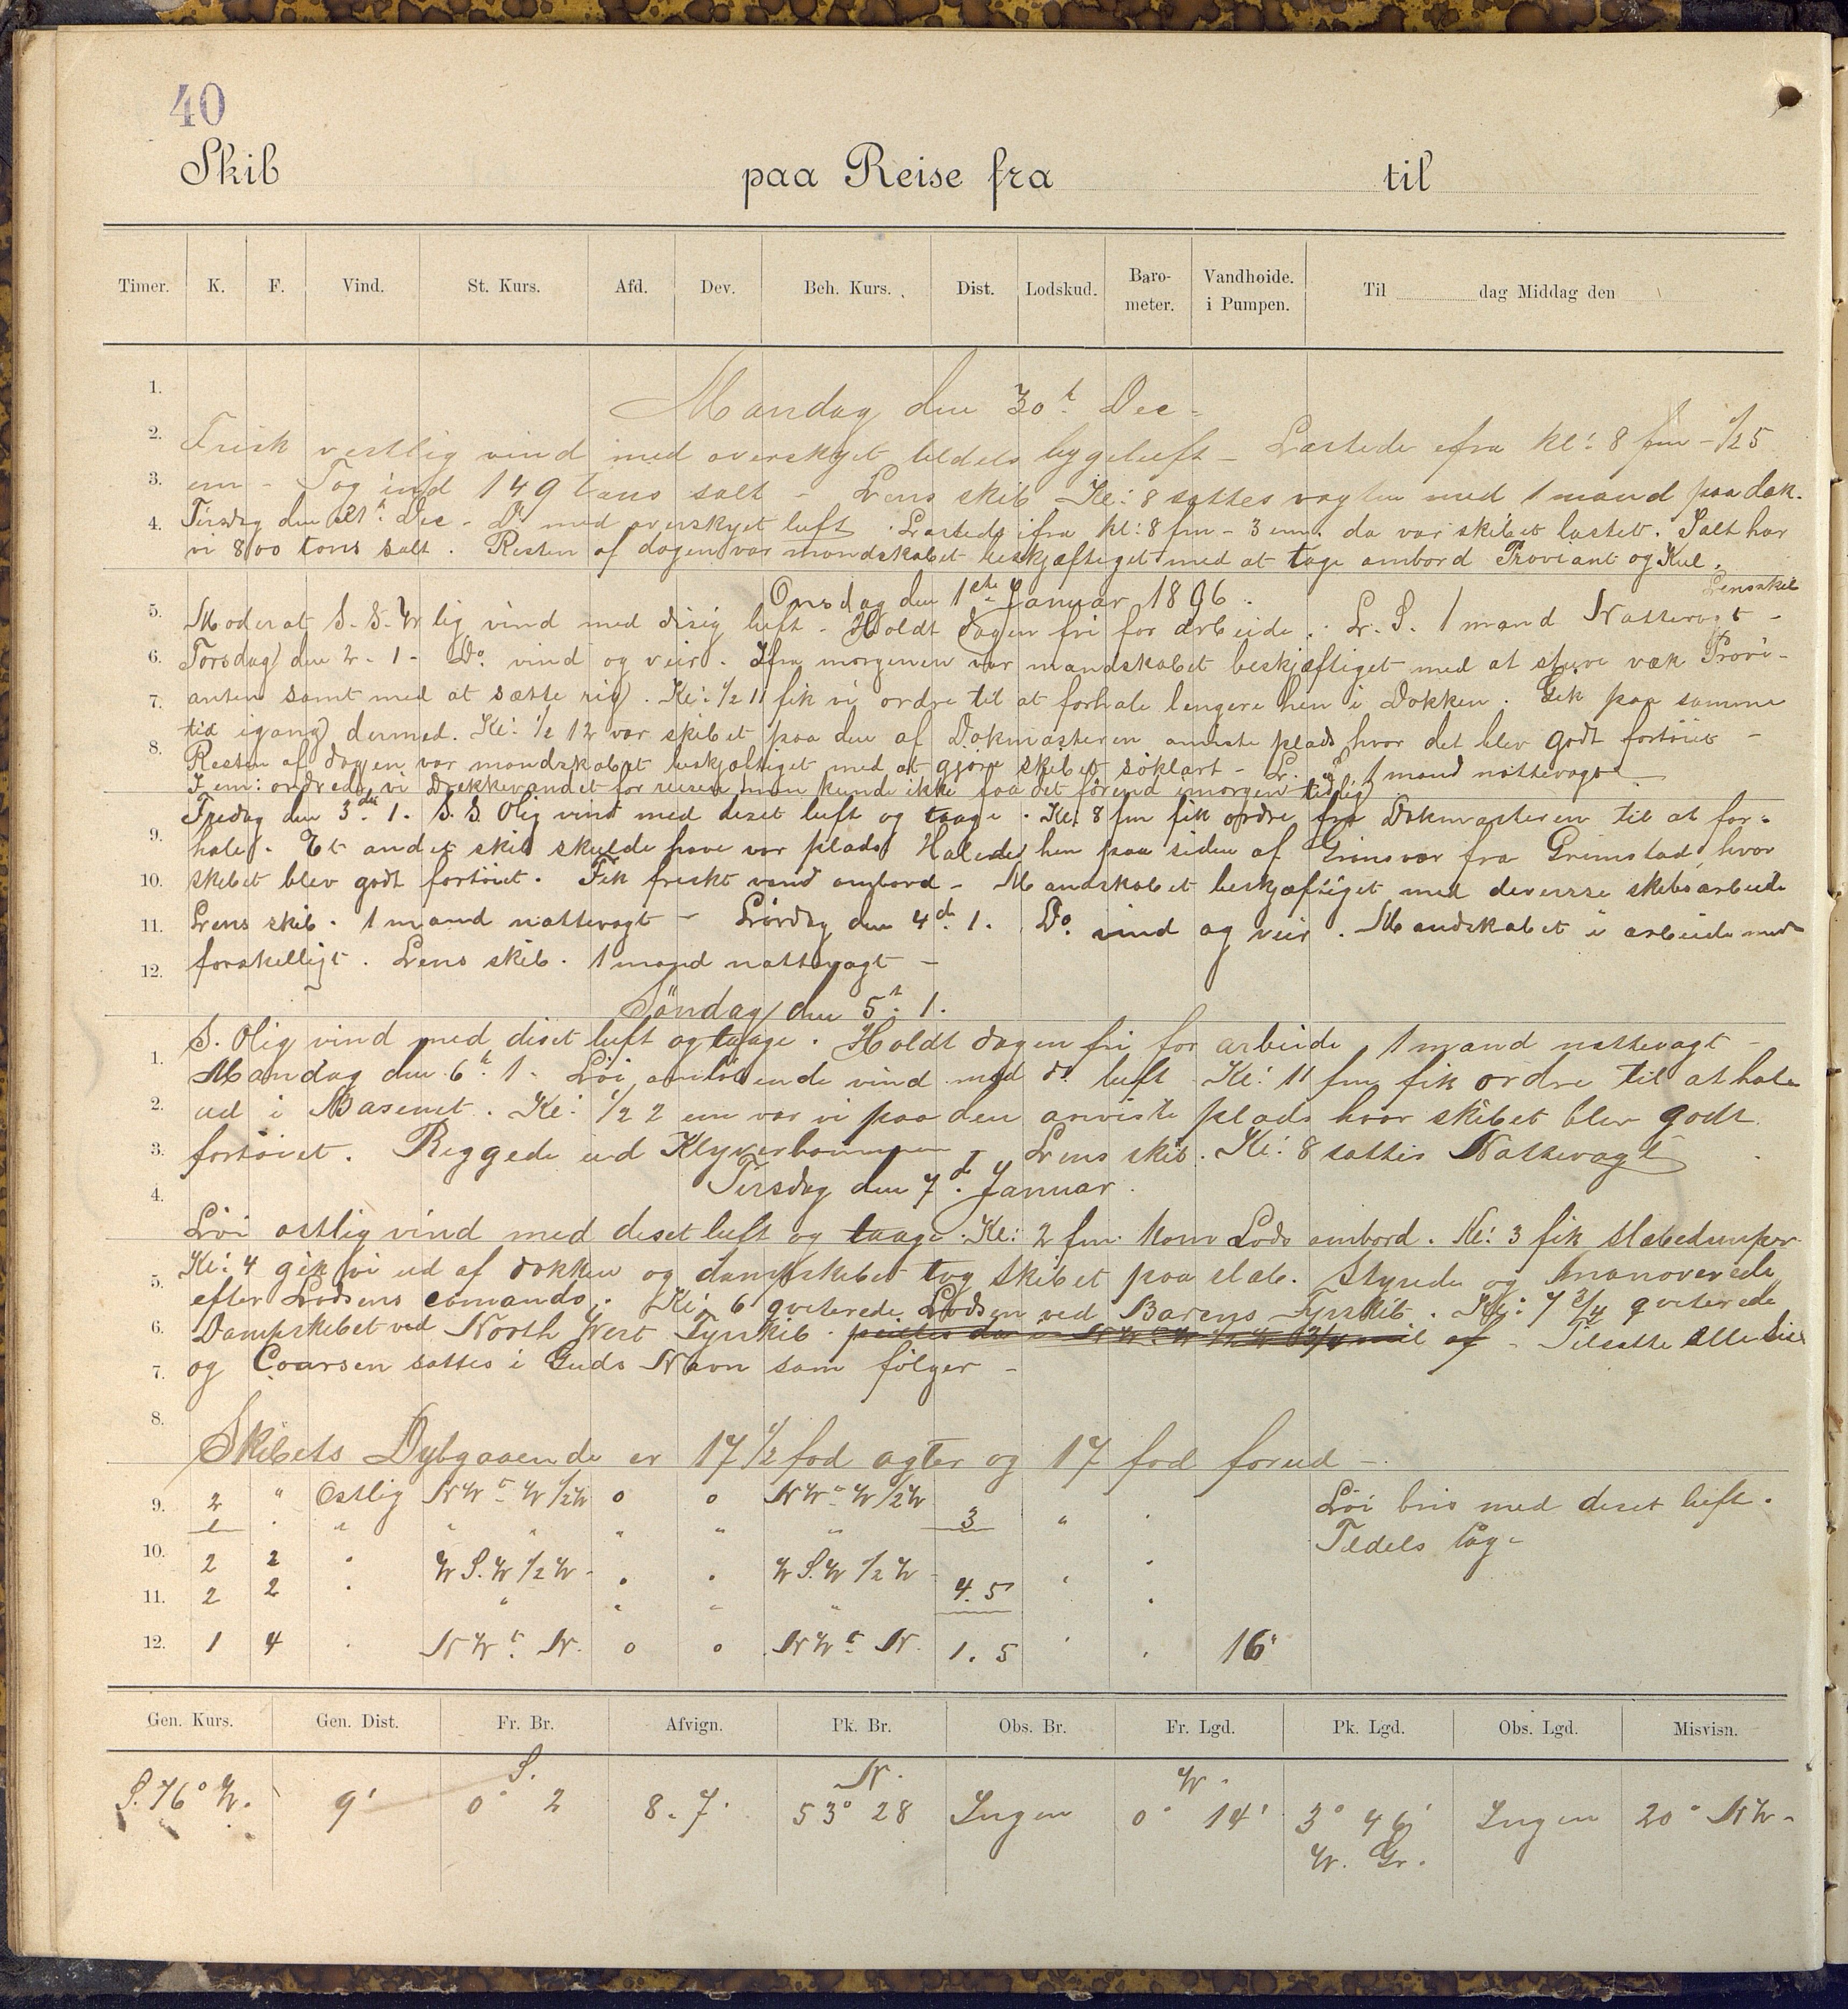 40
Skib paa Reise fra til
Timer. K. F. Vind. St. Kurs. Afd. Dev. Beh. Kurs. Dist. Lodskud. Baro-meter. Vandhoide. i Pumpen. Til dag Middag den
1.
Mandag den 30t Dec -
2.
Frisk vestlig vind med overskyet tildels bygeluft - Lastede ifra kl: 8 fm - 1/2 5
3.
em - Tog ind 149 tons salt - Lens skib Kl: 8 sattes vagten med 1 mand paa dæk.
4.
Tirsdag den 31t Dec - Do med overskyet luft. Lastede ifra kl: 8 fm - 3 em. da var skibet lastet. Ialt har
vi 800 tons salt. Resten af dagen var mandskabet beskjæftiget med at tage ombord Proviant og Kul.
Lensskib
Onsdag den 1ste Januar 1896.
5.
Moderat S. S. W lig vind med disig luft - Holdt dagen fri for arbeide. L. S. 1 mand Nattevagt -
6.
Torsdag den 2 - 1 - Do. vind og veir. Ifra morgenen var mandskabet beskjæftiget med at stuve væk Provi-
7.
anten samt med at sætte rig. Kl: 1/2 11 fik vi ordre til at forhale lengere hen i Dokken. Gik paa samme
tid igang dermed. Kl: 1/2 12 var skibet paa den af Dokmasteren anviste plads hvor det blev godt fortöiet -
8.
Resten af dagen var mandskabet beskjæftiget med at gjøre skibet søklart - L. S. 1 mand nattevagt
I em: ordrede vi Drekkevandet for reisen men kunde ikke faa det förend imorgen tidlig
Fredag den 3die 1. S. S. Olig vind med diset luft og taage. Kl. 8 fm fik ordre fra Dokmasteren til at for-
9.
hale. Et andet skib skulde have vor plads Halede hen paa siden af Grimsvær fra Grimstad, hvor
10.
skibet blev godt fortöiet. Fik friskt vand ombord - Mandskabet beskjæftiget med deversse skibsarbeide
11.
Lens skib. 1 mand nattevagt - Lördag den 4de 1. Do. vind og veir. Mandskabet i arbeide med
12.
forskelligt. Lens skib. 1 mand nattevagt -
Söndag den 5t 1.
1.
S. Olig vind med diset luft og taage. Holdt dagen fri for arbeide 1 mand nattevagt -
Mandag den 6t 1. Löi omlöbende vind med do. luft. Kl: 11 fm fik ordre til at hale
2.
ud i Basenet. Kl: 1/2 2 em var vi paa den anviste plads hvor skibet blev godt
3.
fortöiet. Riggede ud Klyverbommen. Lens skib. Kl: 8 sattes Nattevagt
4.
Tirsdag den 7de Januar.
Löi ostlig vind med diset luft og taage. Kl: 2 fm. kom Lods ombord. Kl: 3 fik slæbedamper
5.
Kl: 4 gik vi ud af dokken og dampskibet tog skibet paa slæb. Styrede og manoverede
efter Lodsens comando. Kl: 6 qviterede Lodsen ved Barens Fyrskib. Kl: 7 3/4 qviterede
6.
Dampskibet ved North West Fyrskib. peiltes da i NWtW 1/2 W 3/4 mil af - Tilsatte alle Seil
7.
og Coursen sattes i Guds Navn som følger -
8.
Skibets Dybgaaende er 17 1/2 fod agter og 17 fod forud -
9. 2 " Ostlig NWtW 1/2 W 0 0 NWtW 1/2 W Löi bris med diset luft.
" " " " " " 3 " Tildels tåge
10. 2 2 " W S. W 1/2 W - " " W S. W 1/2 W "
11. 2 2 " " " " " 4. 5 " "
12. 1 4 " NWt N. 0 0 NWt N. 1. 5 " " 16"
Gen. Kurs. Gen. Dist. Fr. Br. Afvign. Pk. Br. Obs. Br. Fr. Lgd. Pk. Lgd. Obs. Lgd. Misvisn.
S. N. W.
S. 76° W. 9' 0° 2 8. 7' 53° 28 Ingen 0° 14' 3° 46' Ingen 20° NW -
W. Gr.